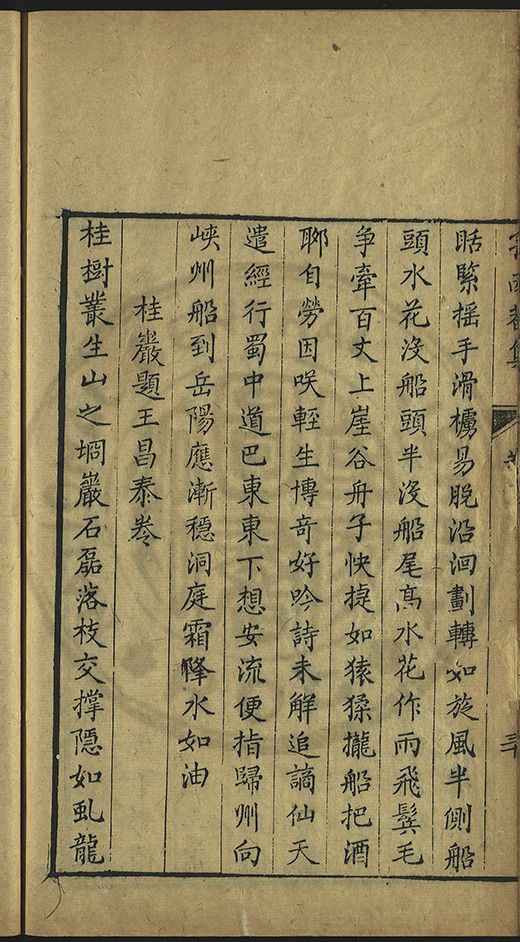 聒緊摇手滑櫋易脱沿洄劃轉如旋風半側船
頭水花没船頭半没船尾髙水花作雨飛鬂毛
争牽百丈上崖谷舟子快捷如猿猱攏船把酒
聊自勞因咲輕生博奇好吟詩未解追謫仙天
遣經行蜀中道巴東東下想安流便指歸州向
峽州船到岳陽應漸穏洞庭霜降水如油
桂巖題王昌泰卷
桂樹叢生山之堈巖石磊落枝交撑隠如虬龍